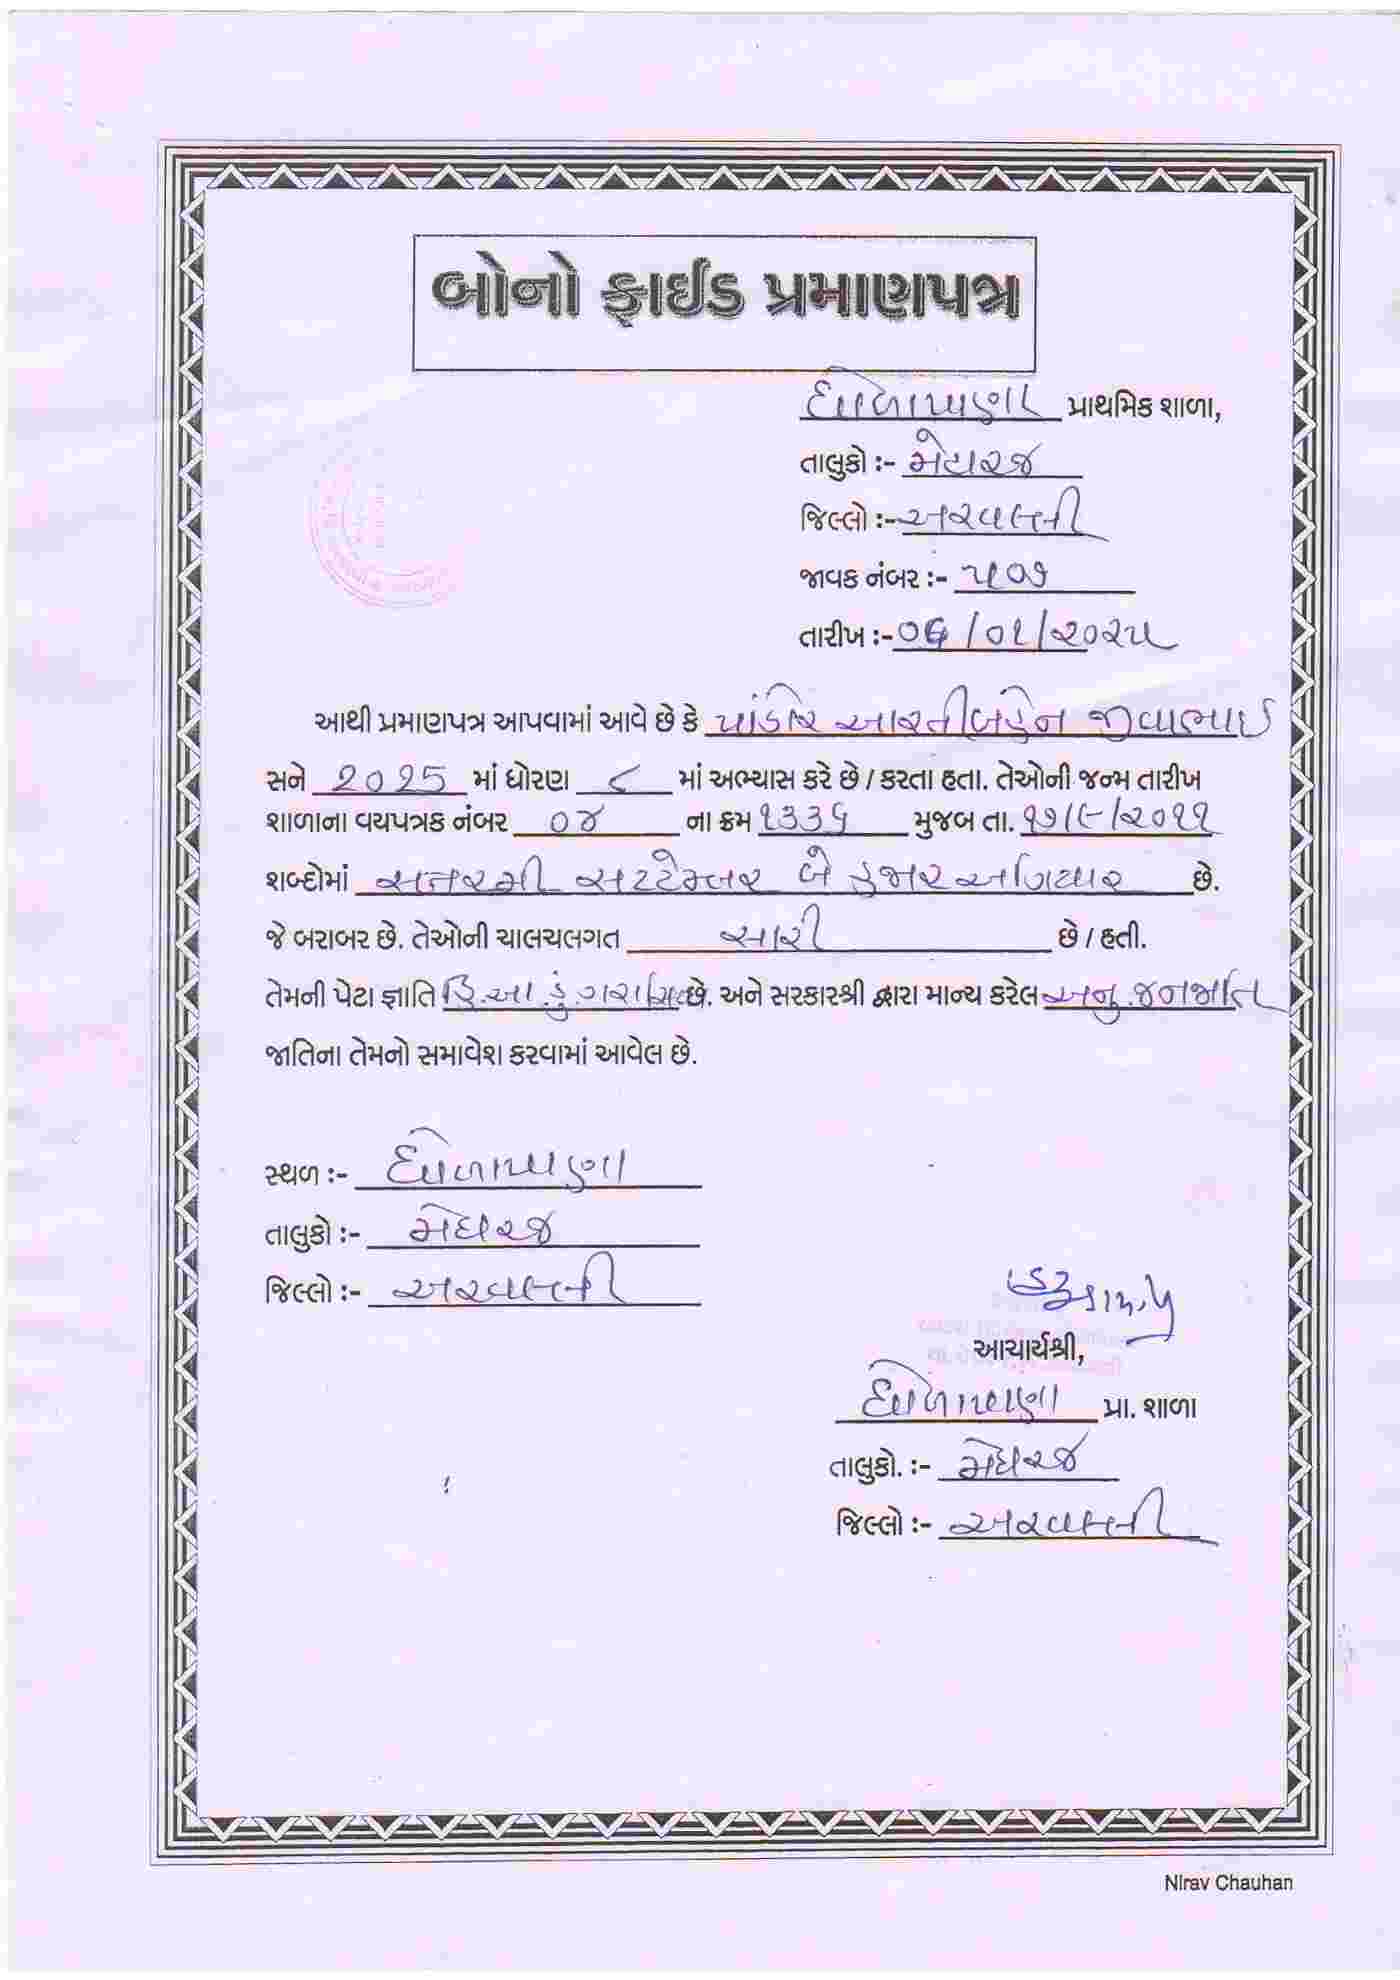 બોનો ફાઈડ પ્રમાણપત્ર
ધોળાપાણા પ્રાથમિક શાળા,
તાલુકો :- મેઘરજ
જિલ્લો :- અરવલ્લી
જાવક નંબર :- ૫૦૭
તારીખ :- ૦૬/૦૧/૨૦૨૫
આથી પ્રમાણપત્ર આપવામાં આવે છે કે પાંડોર આરતીબહેન જીવાભાઈ
સને 2025 માં ધોરણ ૮ માં અભ્યાસ કરે છે / કરતા હતા. તેઓની જન્મ તારીખ
શાળાના વયપત્રક નંબર ૦૪ ના ક્રમ ૧૩૩૬ મુજબ તા. ૧૭/૯/૨૦૧૧
શબ્દોમાં સત્તરમી સપ્ટેમ્બર બે હજાર અગિયાર છે.
જે બરાબર છે. તેઓની ચાલચલગત સારી છે / હતી.
તેમની પેટા જ્ઞાતિ હિ.આ.ડુંગરી છે. અને સરકારશ્રી દ્વારા માન્ય કરેલ અનુ.જનજાતિ
જાતિના તેમનો સમાવેશ કરવામાં આવેલ છે.
સ્થળ :- ધોળાપાણા
તાલુકો :- મેઘરજ
જિલ્લો :- અરવલ્લી
આચાર્યશ્રી,
ધોળાપાણા પ્રા. શાળા
તાલુકો. :- મેઘરજ
જિલ્લો :- અરવલ્લી
Nirav Chauhan